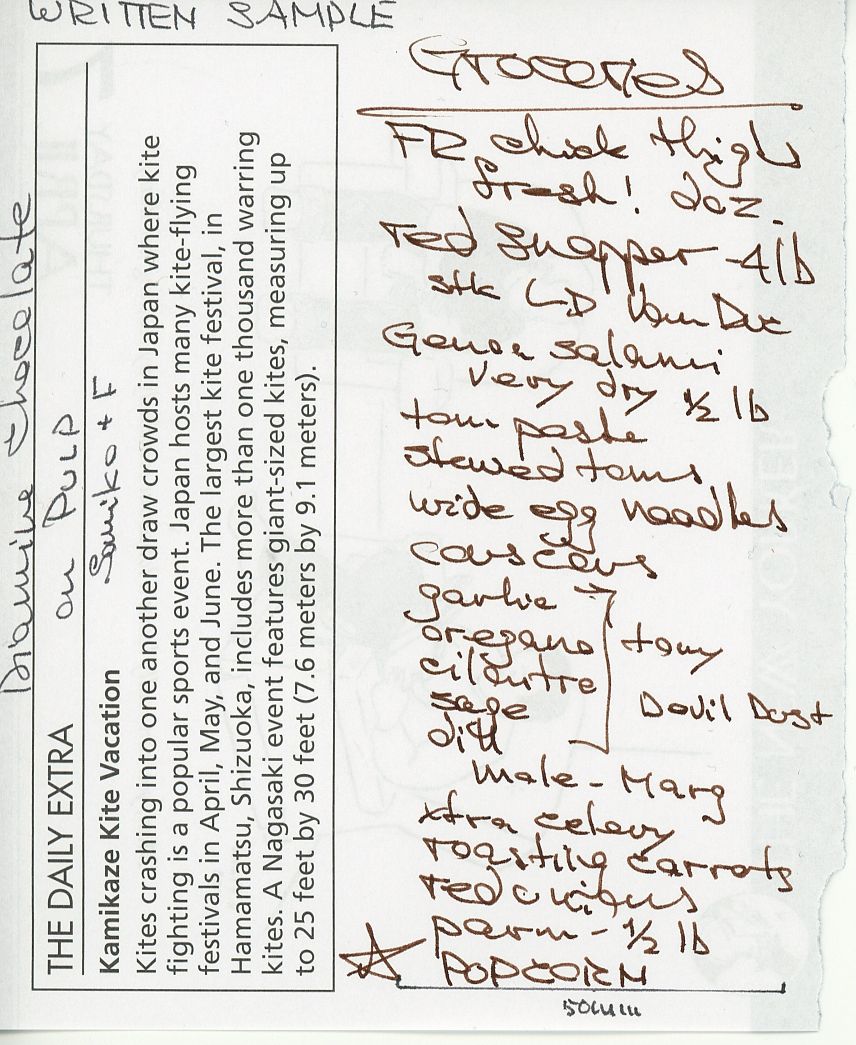 WRITTEN SAMPLE
Diamine Chocolate
on Pulp
Sumiko + F
THE DAILY EXTRA
Kamikaze Kite Vacation
Kites crashing into one another draw crowds in Japan where kite
fighting is a popular sports event. Japan hosts many kite-flying
festivals in April, May, and June. The largest kite festival, in
Hamamatsu, Shizuoka, includes more than one thousand warring
kites. A Nagasaki event features giant-sized kites, measuring up
to 25 feet by 30 feet (7.6 meters by 9.1 meters).
Groceries
FR chick thighs
fresh! doz.
red snapper - 4 lb
stk
Genoa salami
very dry 1/2 lb
tom paste
stewed toms
wide egg noodles
cous cous
garlic
oregano
cilantro
sage
dill
tomy
Devil Dust
male - Marg
xtra celery
roasting carrots
red onions
parm - 1/2 lb
POPCORN